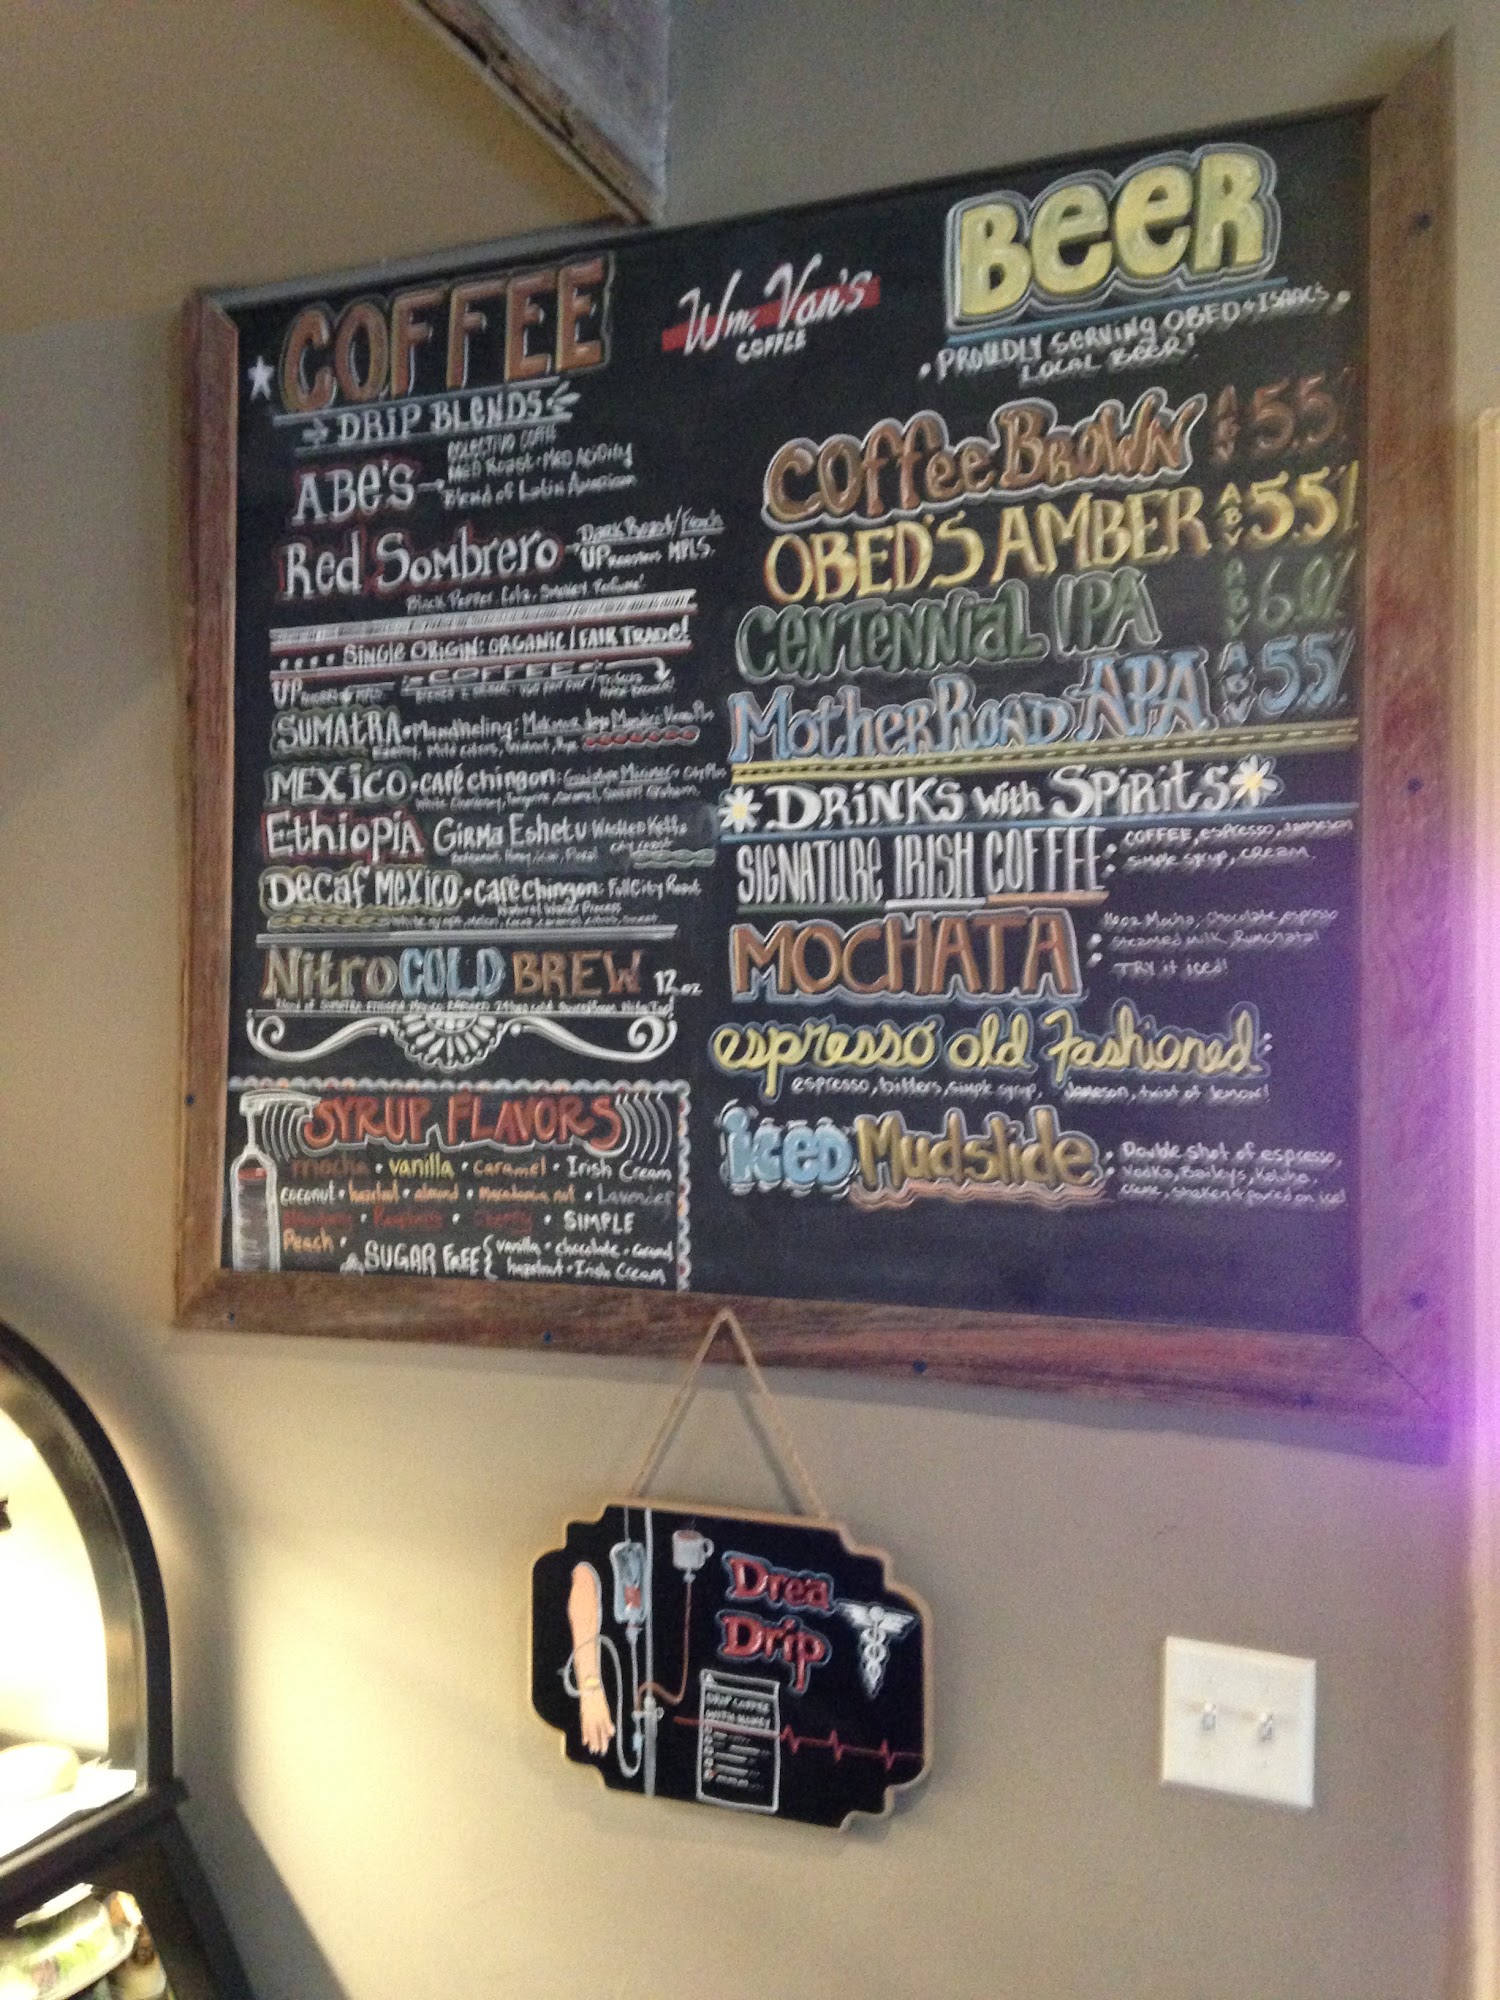 COFFEE
DRIP BLENDS
ABe's
Med Roast • Med Acidity
Blend of Latin American
Red Sombrero
Dark Roast/French
UP Roasters MPLS.
Black Pepper, Smokey Perfume!
SINGLE ORIGIN: ORGANIC / FAIR TRADE!
COFFEE
UP
SUMATRA • Mandheling:
MEXICO • café chingon:
Ethiopia Girma Eshetu Washed
Decaf Mexico • Café chingon: Full City Roast
Nitro COLD BREW 12oz
SYRUP FLAVORS
mocha • vanilla • caramel • Irish Cream
coconut • hazelnut • almond • macadamia nut • Lavender
• Raspberry • Cherry • SIMPLE
Peach •
SUGAR FREE { vanilla • chocolate • caramel
hazelnut • Irish Cream
Wm. Van's
COFFEE
BEER
• PROUDLY SERVING OBED & ISAAC'S •
LOCAL BEER!
Coffee Brown ABV 5.5%
OBED'S AMBER ABV 5.5%
Centennial IPA ABV 6.0%
Mother Road APA ABV 5.5%
DRINKS with SPIRITS
SIGNATURE IRISH COFFEE: COFFEE, espresso, Jameson
simple syrup, cream.
MOCHATA : 16oz Mocha, Chocolate, espresso
steamed milk, Rumchata!
TRY it iced!
espresso old Fashioned:
espresso, bitters, simple syrup, Jameson, twist of lemon!
iceD Mudslide • Double shot of espresso,
• Vodka, Baileys, Kahlua,
creme, shaken & poured on ice!
Drea
Drip
DRIP COFFEE
WITH HONEY